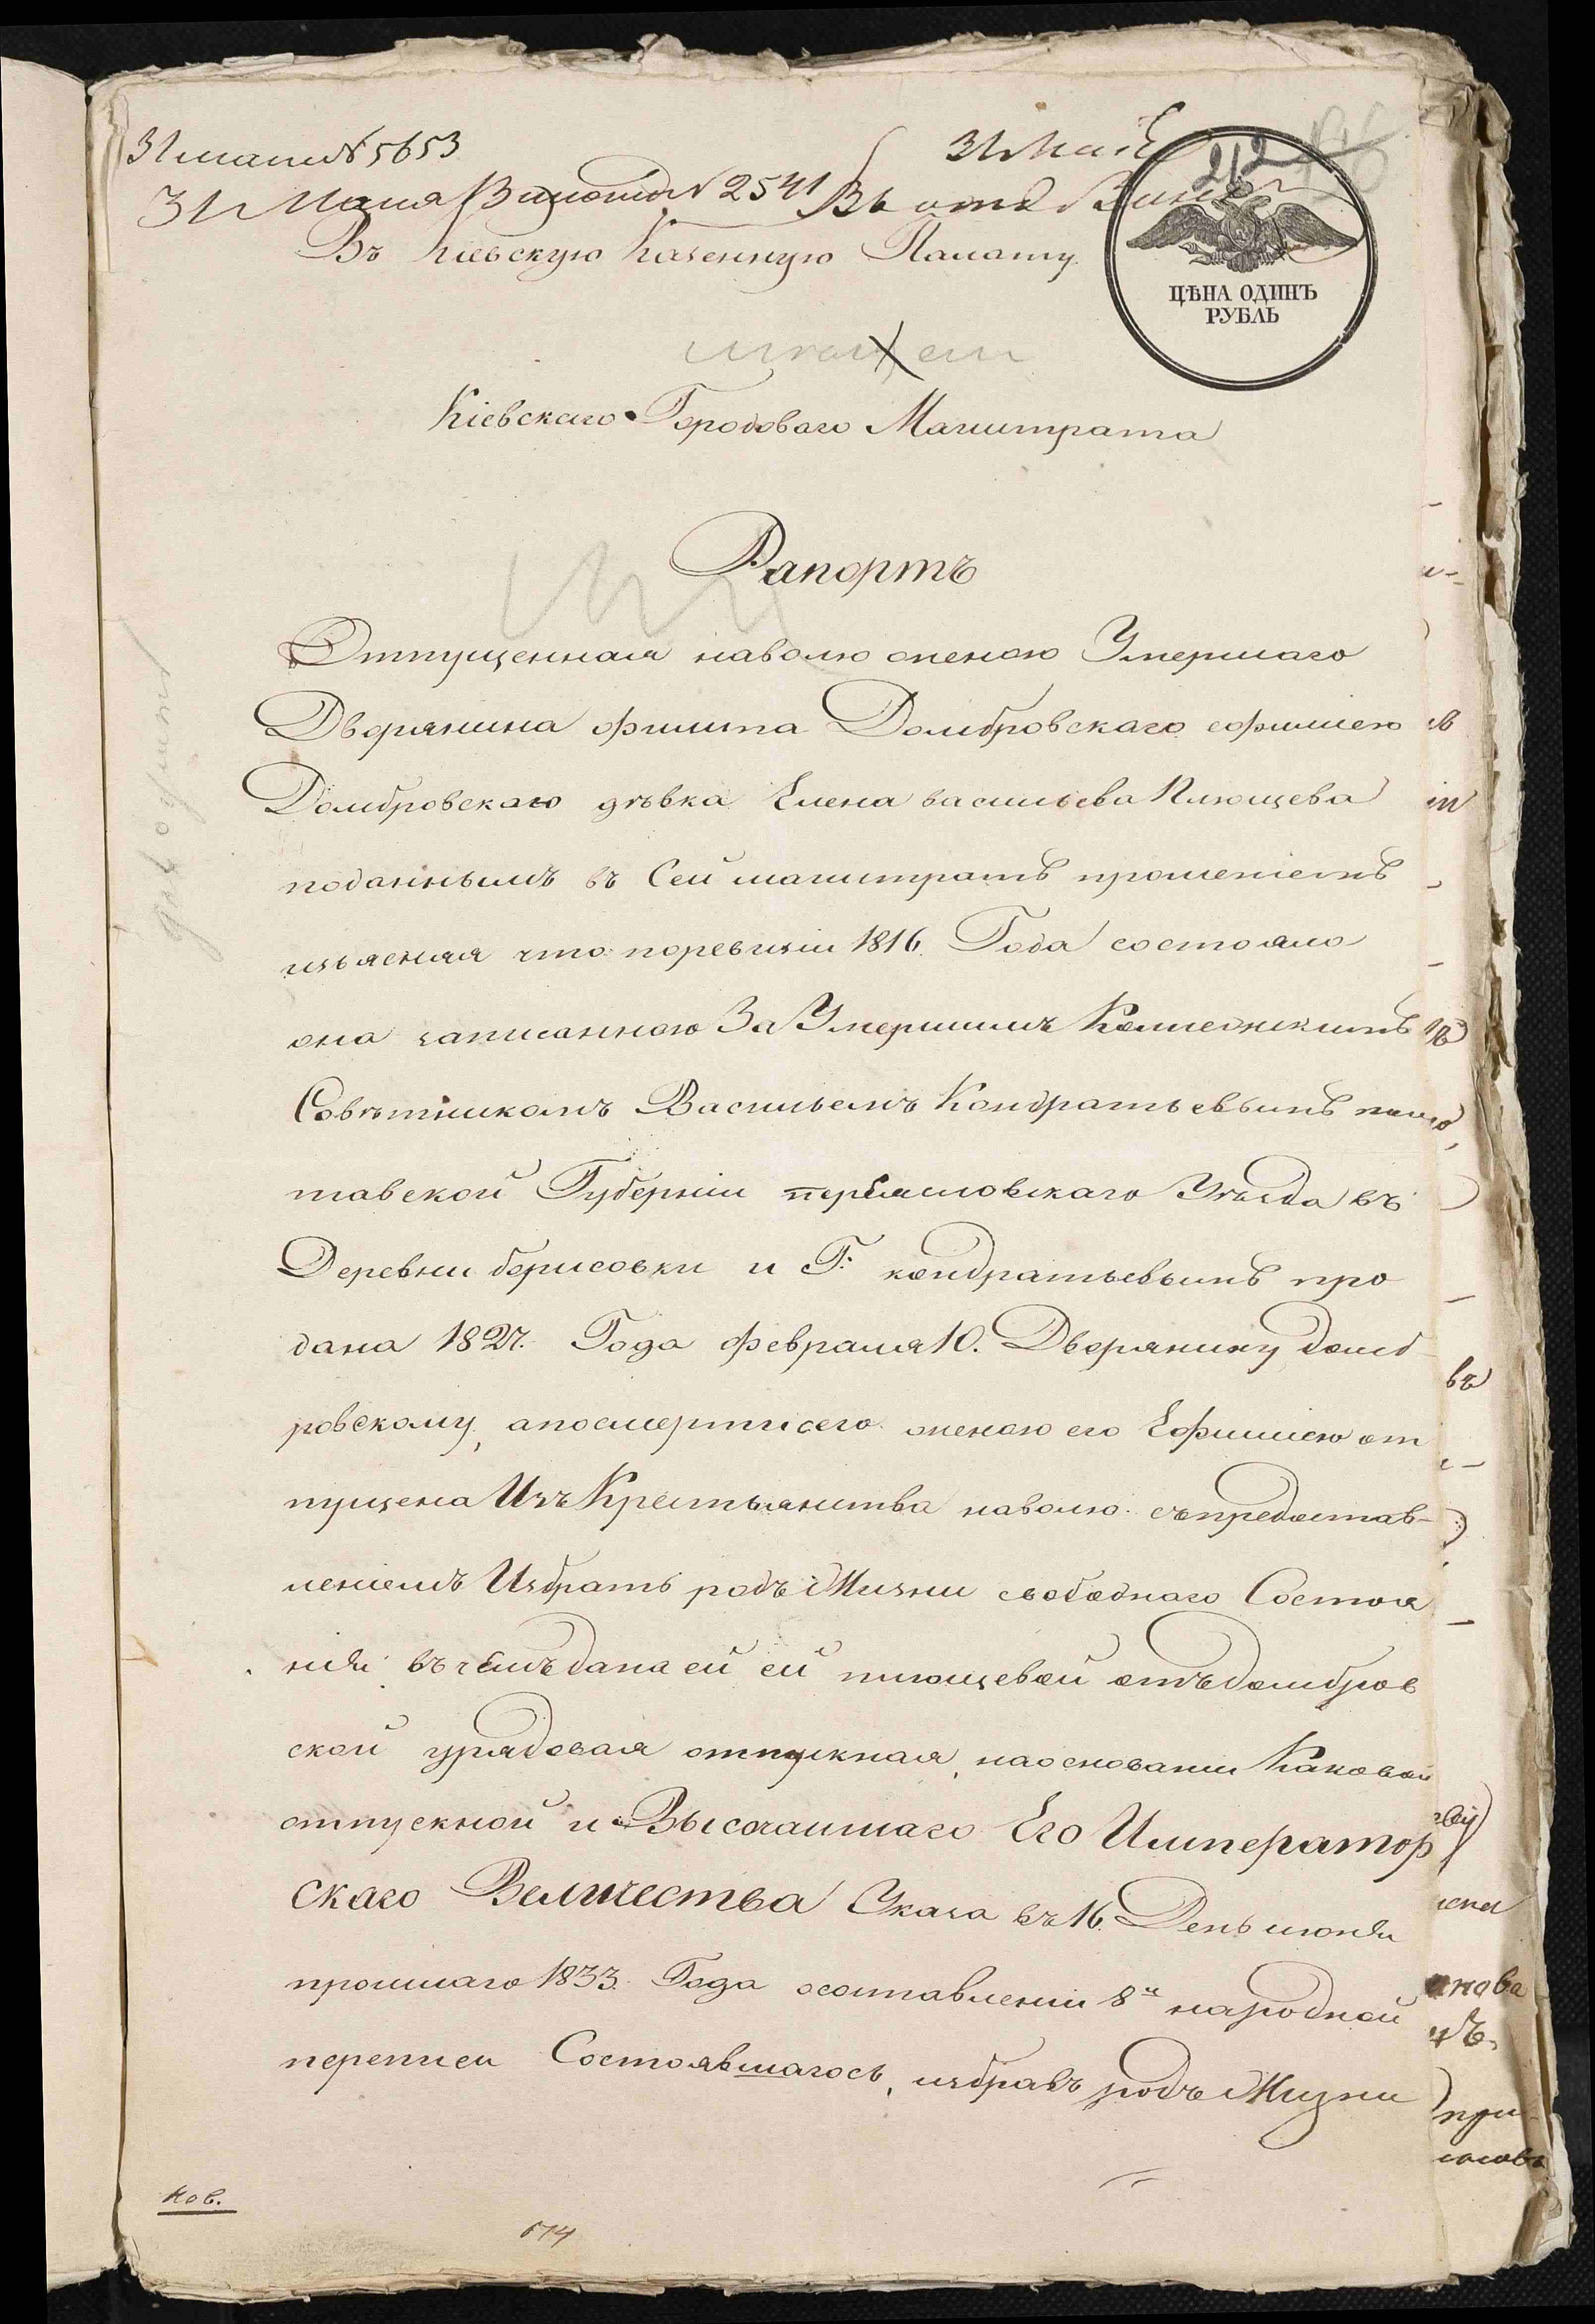 31 мая № 5653
31 Маія
31 Мая В № 2541 Въ отд
212
Въ Кіевскую Казенную Палату
ЦѢНА ОДИНЪ
РУБЛЬ
Кіевскаго Городоваго Магистрата
Рапортъ
Отпущенная наволю женою Умершаго
Дворянина филипа Домбровскаго ефимиею
Домбровскаго дѣвка Елена васильева Плющева
поданнымъ въ Сей магистратъ прошеніемъ
изъясняя что поревизіи 1816. Года состояла
она записанною За Умершимъ Колежскимъ
Совѣтникомъ Васильемъ Кондратьевымъ пол
тавской Губерніи переяславскаго Уѣзда въ
Деревни борисовки и Г: кондратьевымъ про
дана 1827. Года февраля 10. Дворянину домб
ровскому, апосмерти сего женою его Ефимiею от
пущена Изъ Крестьянства наволю съпредостав-
леніемъ Избрать родъ Жизни свободнаго Состоя
нія въ чемъ дана ей ей плющевой отъ домбров
ской урядовая отпускная, наосновании Каковой
отпускной и Высочаишаго Его Император
скаго Величества Указа въ 16. День июня
прошлаго 1833. Года осоставлении 8й народной
переписи Состоявшагося, избравъ родъ Жизни
въ
при
Ков.
674